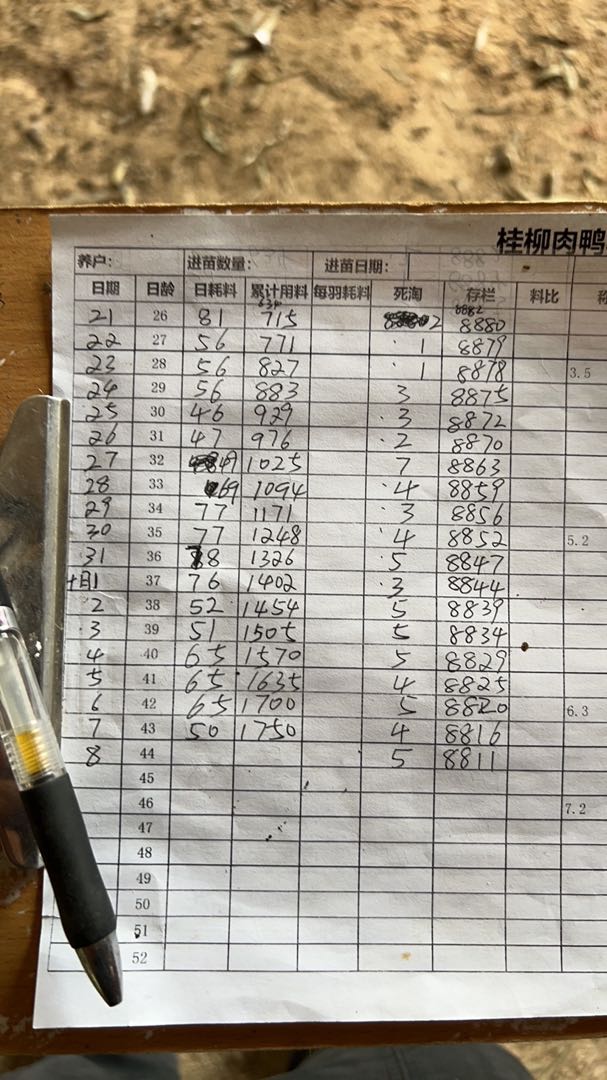 桂柳肉鸭
养户: 进苗数量: 进苗日期:
日期 日龄 日耗料 累计用料 每羽耗料 死淘 存栏 料比
634 8882
21 26 81 715 2 8880
22 27 56 771 1 8879
23 28 56 827 1 8878 3.5
24 29 56 883 3 8875
25 30 46 929 3 8872
26 31 47 976 2 8870
27 32 49 1025 7 8863
28 33 69 1094 4 8859
29 34 77 1171 3 8856
30 35 77 1248 4 8852 5.2
31 36 78 1326 5 8847
十月1 37 76 1402 3 8844
2 38 52 1454 5 8839
3 39 51 1505 5 8834
4 40 65 1570 5 8829
5 41 65 1635 4 8825
6 42 65 1700 5 8820 6.3
7 43 50 1750 4 8816
8 44 5 8811
45
46 7.2
47
48
49
50
51
52